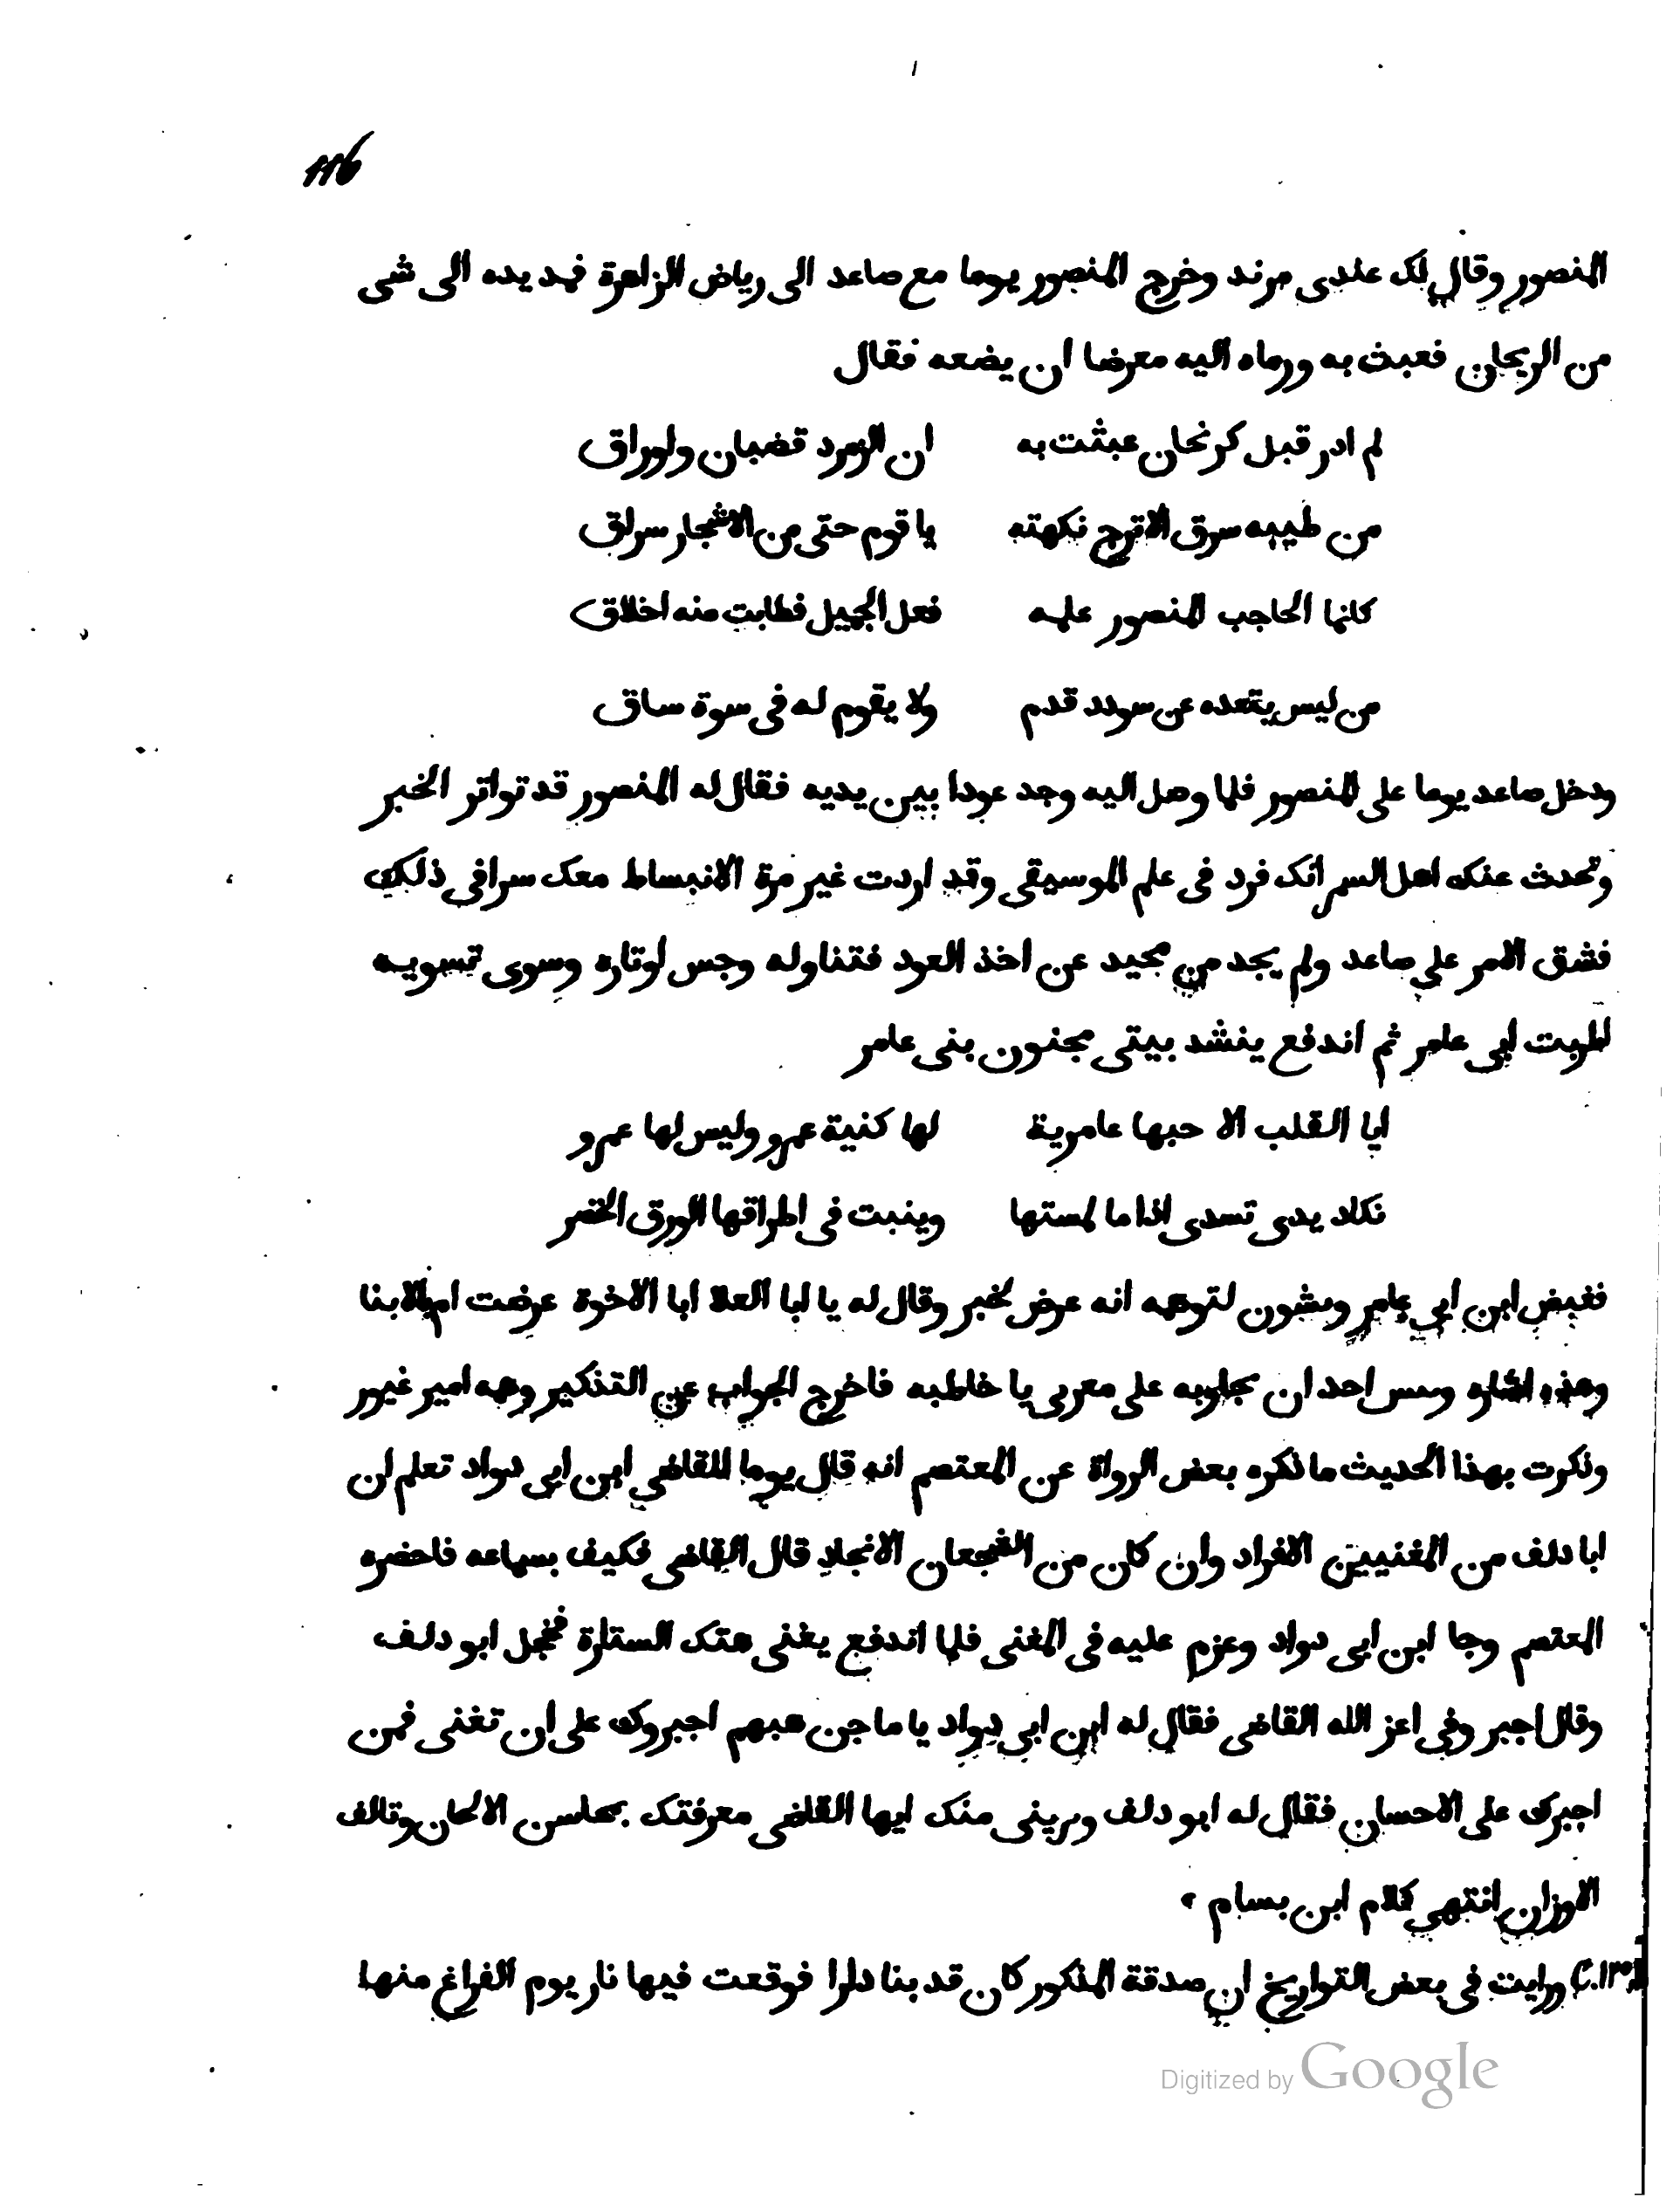 116
المنصور وقال لك عندى مزند وخرج المنصور يوما مع صاعد الى رياض الزاهرة فمد يده الى شى
من الريحان فعبث به ورماه اليه معرضا ان يضعه فقال
لم ادر قبل كرنحان عبثت به ان الزمرد قضبان واوراق
من طيبه سرق الاترج نكهته يا قوم حتى من الاشجار سراق
كانما الحاجب المنصور علمه فعل الجميل فطابت منه اخلاق
من ليس يقعده عن سودد قدم ولا يقوم له فى سوة ساق
ودخل صاعد يوما على المنصور فلما وصل اليه وجد عودا بين يديه فقال له المنصور قد تواتر الخبر
وتحدث عنك اهل السر انك فرد فى علم الموسيقى وقد اردت غير مرة الانبساط معك سرا فى ذلك
فشق الامر على صاعد ولم يجد من محيد عن اخذ العود فتناوله وجس اوتاره وسوى تسويه
اطربت ابى عامر ثم اندفع ينشد بيتى مجنون بنى عامر
ايا القلب الا حبها عامرية لها كنية عمرو وليس لها عمرو
تكاد يدى تندى اذا ما لمستها وينبت فى اطراقها الورق الخضر
فغبض ابن ابى عامر لتوهمه انه عرض بخبر وقال له يا ابا العلا ابا الاخوة عرضت ام بالابنا
وهذه احد ان يجاوبه على يا خاطبه فاخرج الجواب عن التذكير وهه امير غيور
وذكرت بهذا الحديث ما ذكره بعض الرواة عن المعتصم انه قال يوما للقاضى ابن ابى دواد تعلم ان
ابا دلف من المغنيين الافراد وان كان من الشجعان الانجاد قال القاضى فكيف بسماعه فاحضره
المعتصم وجا ابن ابى دواد وعزم عليه فى المغنى فلما اندفع يغنى هتك الستارة فخجل ابو دلف
وقال اجبر ونى اعز الله القاضى فقال له ابن ابى دواد يا ماجن هبهم اجبروك على ان تغنى فمن
اجبرك على الاحسان فقال له ابو دلف ويرينى منك ايها القاضى معرفتك بمحاسن الالحان وتالف
الاوزان انتهى كلام ابن بسام
ورايت فى بعض التواريخ ان صدقة المذكور كان قد بنا دارا فوقعت فيها نار يوم الفراغ منها
Digitized by Google